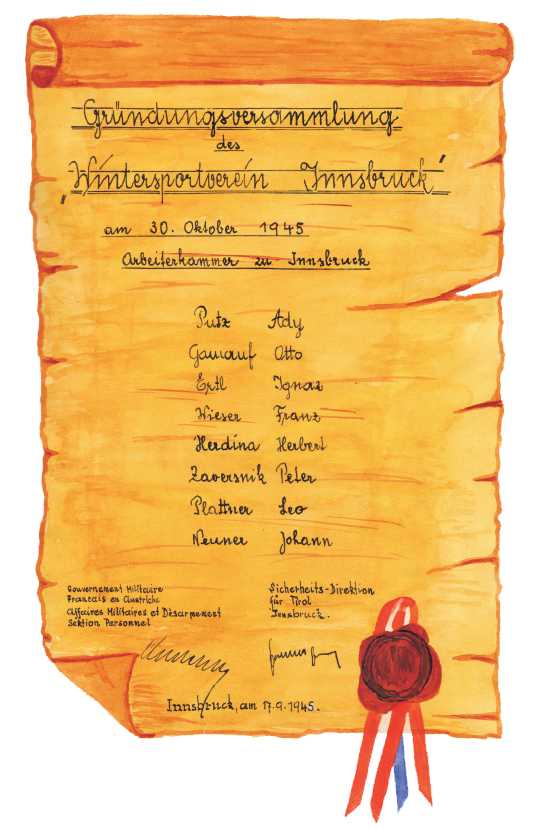 Gründungsversammlung
des
"Wintersportverein Innsbruck"
am 30. Oktober 1945
Arbeiterkammer zu Innsbruck
Putz Ady
Gamauf Otto
Ertl Ignaz
Wieser Franz
Herdina Herbert
Zaversnik Peter
Plattner Leo
Neuner Johann
Gouvernement Militaire
Francais en Austriche
Affaires Militaires et Dèsarmement
Sektion Personnel
Sicherheits-Direktion
für Tirol
Innsbruck.
Innsbruck, am 17.9.1945.